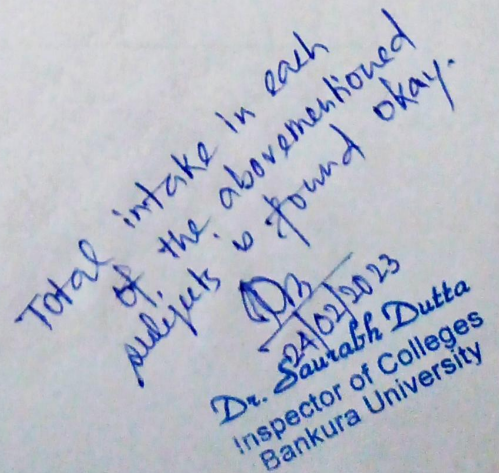 Total intake in each
of the abovementioned
subjects is found okay.
24/02/2023
Dr. Saurabh Dutta
Inspector of Colleges
Bankura University